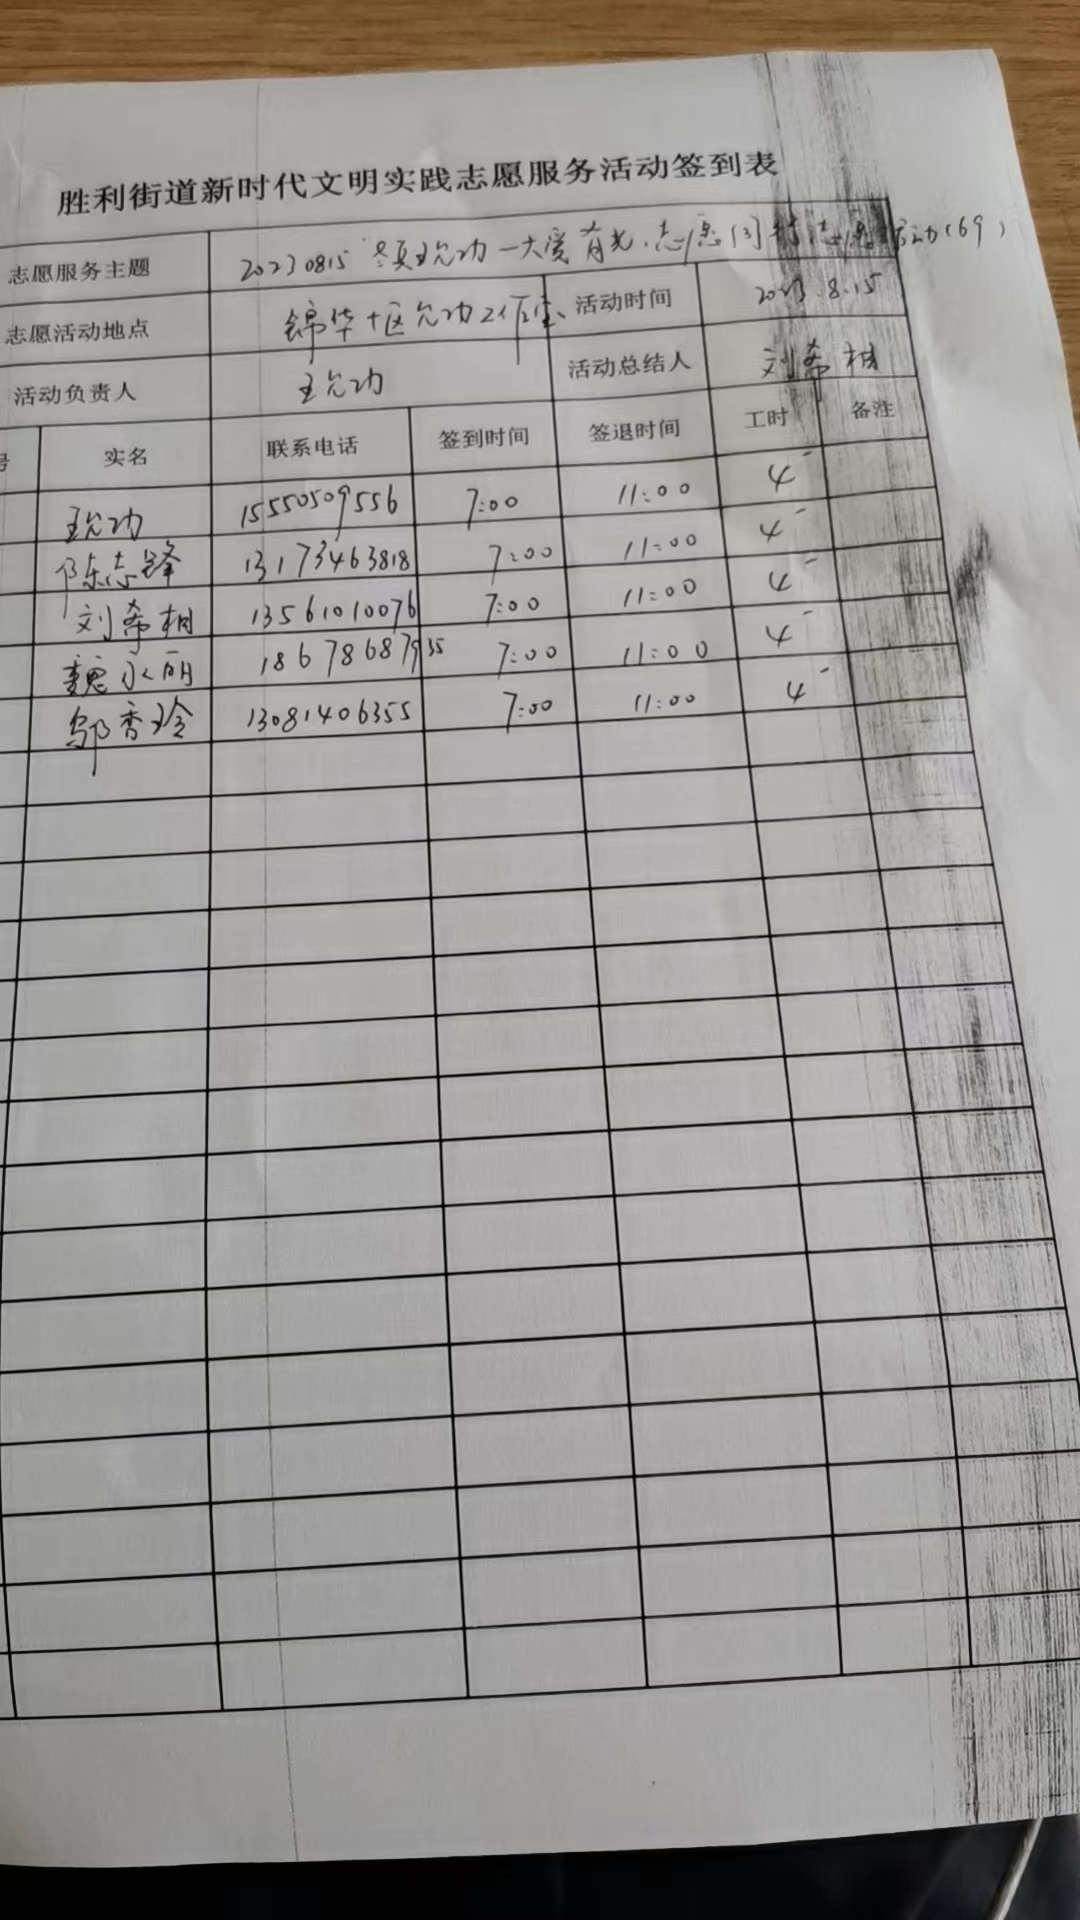 胜利街道新时代文明实践志愿服务活动签到表
志愿服务主题 20230815 王允功一大爱有光.志愿同 志愿 活动(69)
志愿活动地点 锦华十区允功工作室 活动时间 2023.8.15
活动负责人 王允功 活动总结人 刘希相
号 实名 联系电话 签到时间 签退时间 工时 备注
王允功 15550509556 7:00 11:00 4
陈志锋 13173463818 7:00 11:00 4
刘希相 13561010076 7:00 11:00 4
魏永丽 7:00 11:00 4
邬香玲 13081406355 7:00 11:00 4